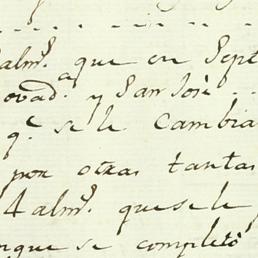 almˢ. que en Sept
ovadᵃ. y San Josè
qᵉ. se le Cambia
por otras tantas
4 almˢ. que se le
rque se completò